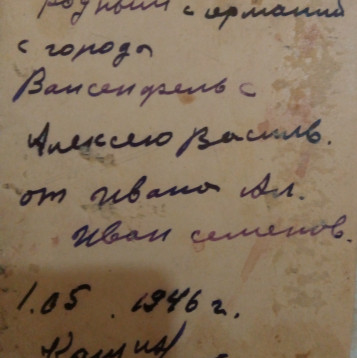 родным с германии
с города
Вансенфельс
Алексею Василь.
от Ивана Ал.
Иван семенов.
1.05.1946 г.